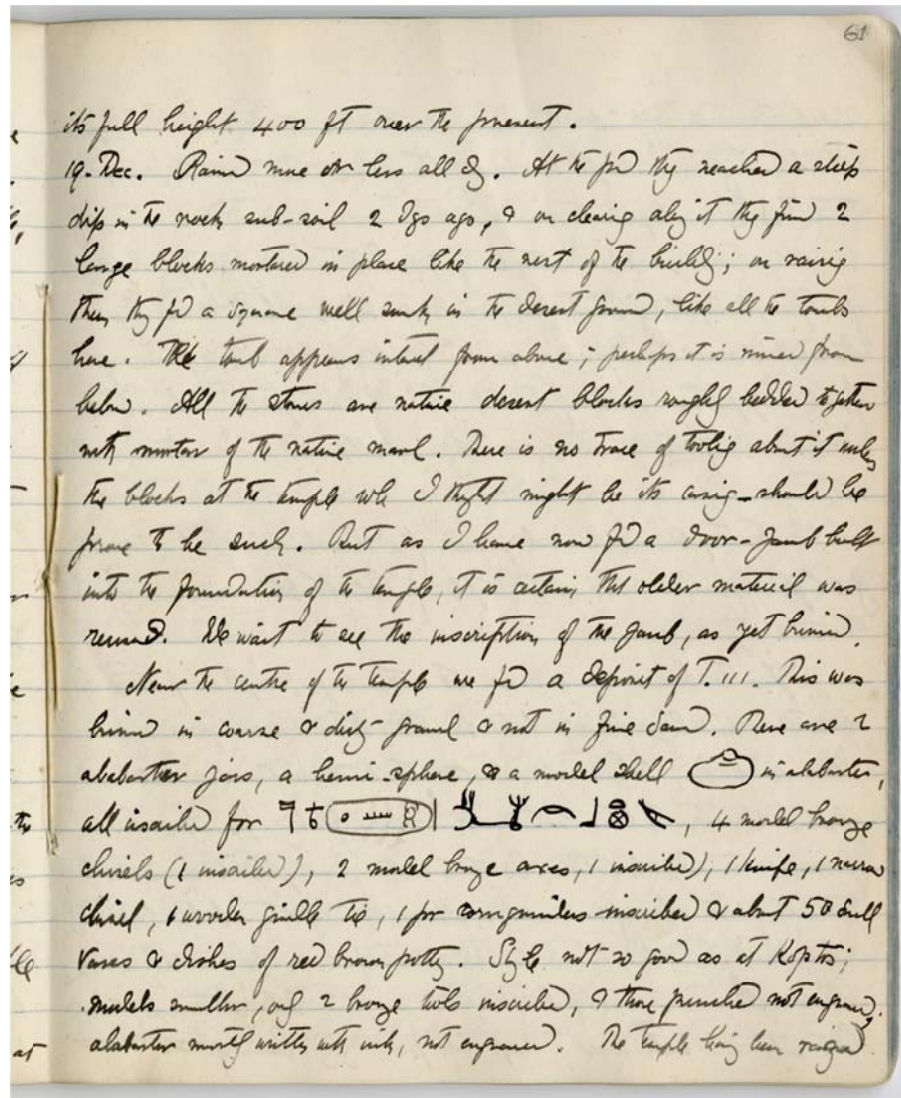 61
its full height 400 ft over the present.
19. Dec. Rained more or less all dy. At the pyr thy reached a steep
dip in the rock sub-soil 2 dys ago, & on clearing alng it thy find 2
large blocks mortared in place like the rest of the buildg; on raisig
them thy fd a square well sunk in the desert ground, like all the tombs
here. The tomb appears intact from above; perhaps it is mined from
below. All the stones are native desert blocks roughly bedded together
with mortar of the native marl. There is no trace of toolig about it unless
the blocks at the temple wh I thght might be its casig should be
prove to be such. But as I have now fd a door-jamb built
into the foundation of the temple, it is certain that older material was
reused. We want to see the inscription of the jamb, as yet buried.
Near the centre of the temple we fd a deposit of T.III. This was
buried in coarse & dirty gravel & not in fine sand. There are 2
alabaster jars, a hemi-sphere, & a model shell in alabaster,
all inscribed for 𓊹𓄤𓍹𓇳𓏠𓆣𓍺, 4 model bronze
chisels (1 inscribed), 2 model bronze axes, 1 inscribed), 1 knife, 1 narrow
chisel, 1 wooden girdle tie, 1 inscribed & about 50 small
vases & dishes of red brown potty. Style not so good as at Koptos;
models smaller, only 2 bronze tools inscribed, & those punched not engraved,
alabaster mostly written with ink, not engraved. The temple havig been